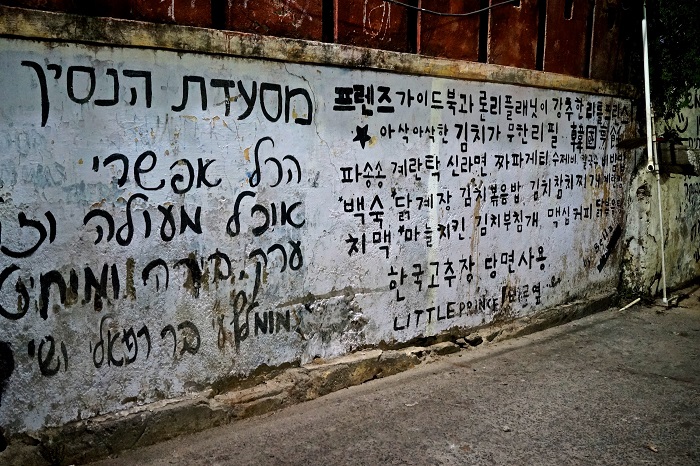 מסעדת הנסיך
הכל אפשרי
אוכל מעולה
ערק, בירה ומוחיט
מומלץ ע בר רפאלי ושי
프렌즈 가이드북과 론리플래닛이 강추한 리틀
★ 아삭아삭한 김치가 무한리필 韓国
파송송 계란탁 신라면 짜파게티 수제비 칼국수 비빔밥
*백숙* 닭계장 김치볶음밥 김치참치찌개
치맥 *마늘치킨 김치부침개 맥심커피
한국고추장 당면사용
LITTLE PRINCE 바로옆